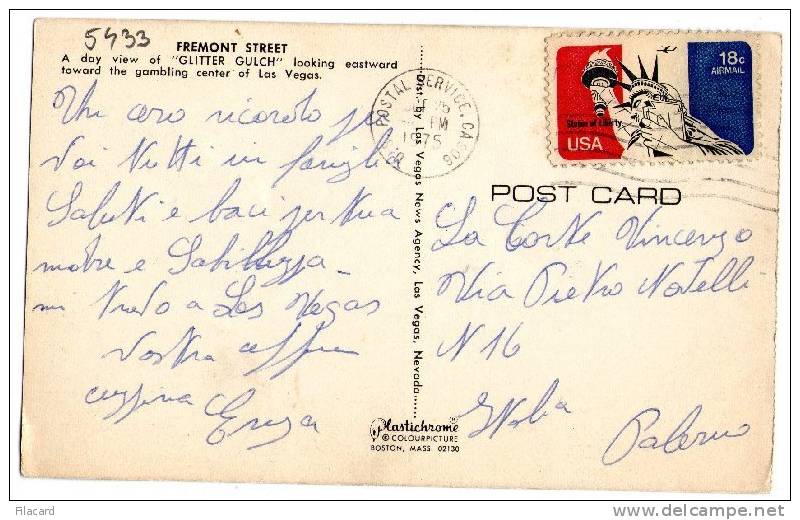 5433
FREMONT STREET
A day view of "GLITTER GULCH" looking eastward
toward the gambling center of Las Vegas.
Un caro ricordo per
voi tutti in famiglia
Saluti e baci per tua
madre e
mi trovo a Las Vegas
vostra
cugina Enza
Dist. by Las Vegas News Agency, Las Vegas, Nevada
Plastichrome®
© COLOURPICTURE
BOSTON, MASS. 02130
POSTAL SERVICE, CA
PM
1975
18c
AIRMAIL
Statue of Liberty
USA
POST CARD
La Corte Vincenzo
Via Pietro Novelli
N 16
Palermo
Filacard
www.delcampe.net